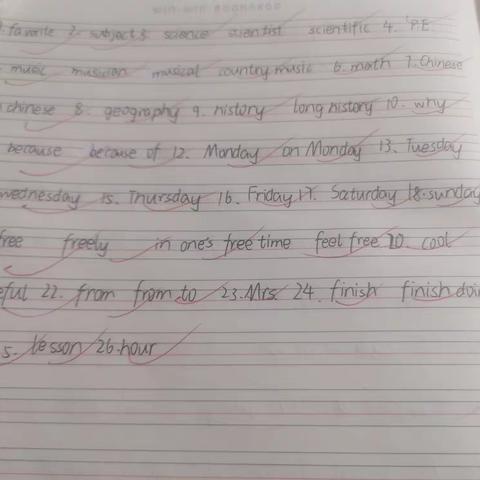 favorite 2. subject 3 science scientist scientific 4. P.E.
music musician musical country music 6. math 7. Chinese
chinese 8. geography 9. history long history 10. why
because because of 12. Monday on Monday 13. Tuesday
wednesday 15. Thursday 16. Friday 17. Saturday 18. sunday
free freely in one's free time feel free 20. cool
eful 22. from from to 23. Mrs. 24. finish finish doin
5. lesson 26. hour